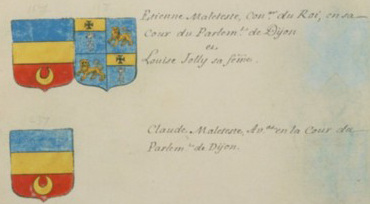 Etienne Maleteste, Con.er du Roi, en sa
Cour du Parlem.t de Dijon
et
Louise Jolly sa feme.
Claude Maleteste, Av.at en la Cour du
Parlem.t de Dijon.